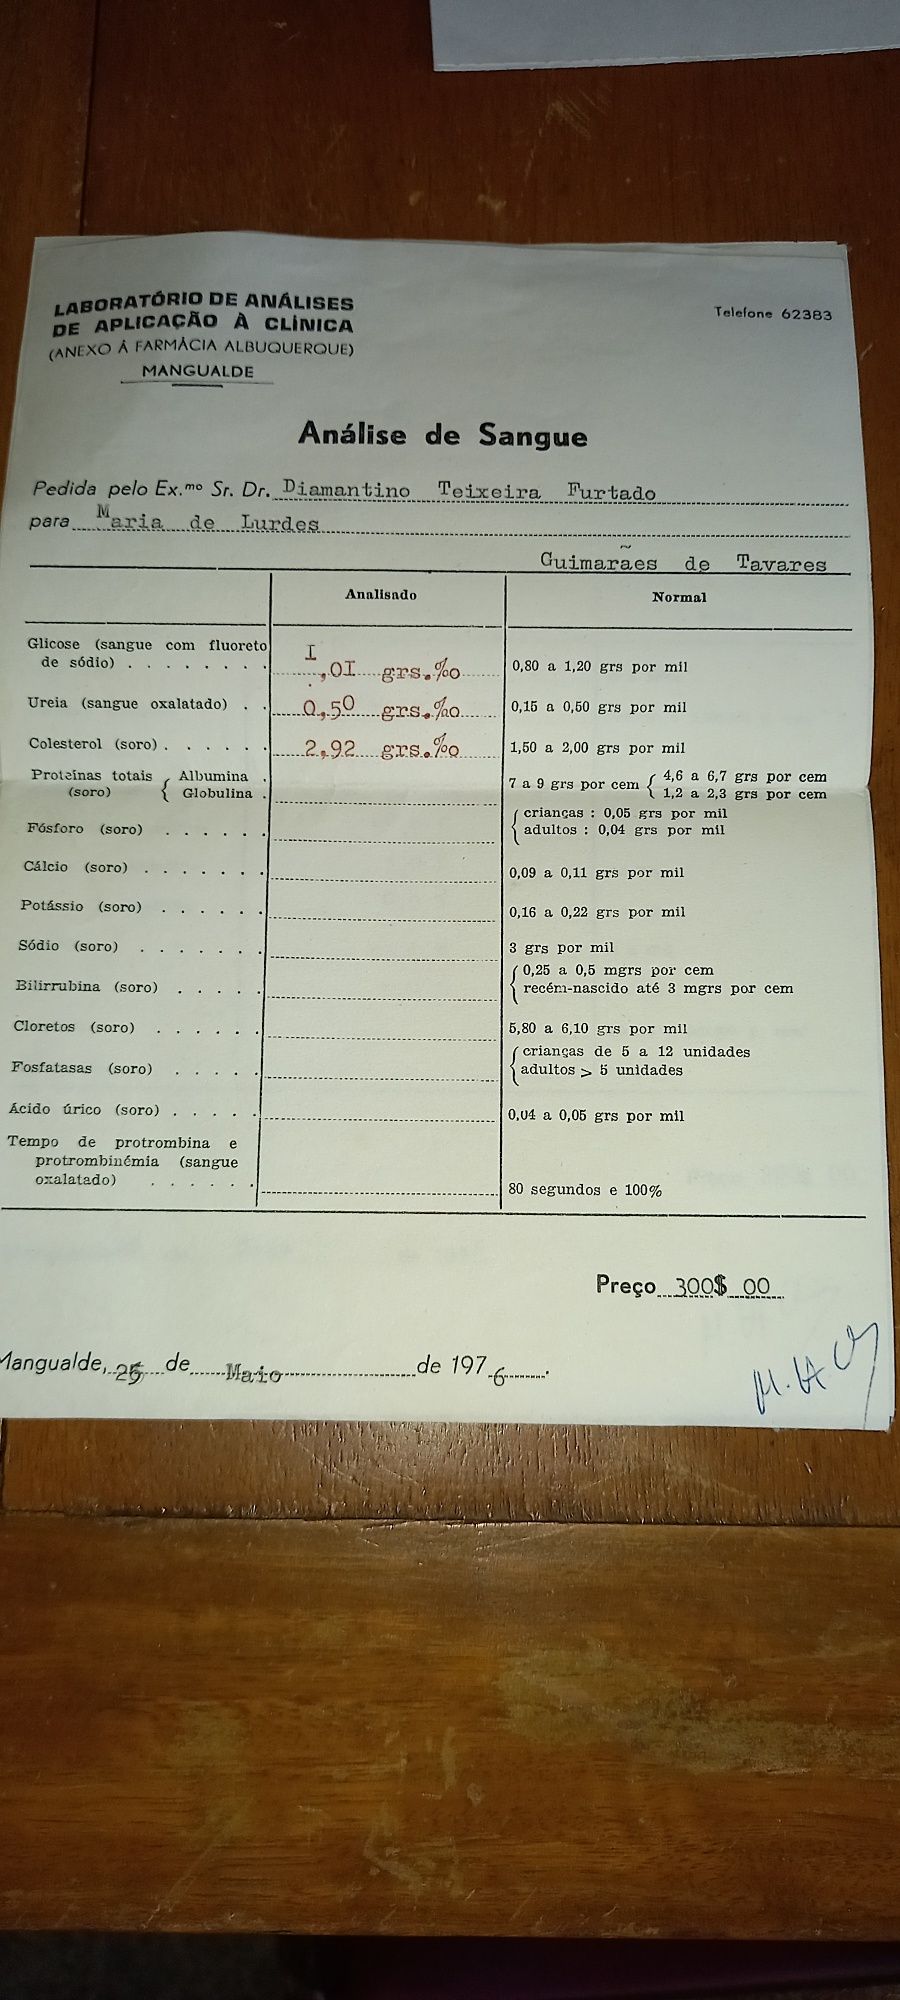 LABORATÓRIO DE ANÁLISES
DE APLICAÇÃO À CLÍNICA
(ANEXO À FARMÁCIA ALBUQUERQUE)
MANGUALDE
Telefone 62383
Análise de Sangue
Pedida pelo Ex.mo Sr. Dr. Diamantino Teixeira Furtado
para Maria de Lurdes
Guimarães de Tavares
Analisado Normal
Glicose (sangue com fluoreto
de sódio) . . . . . . . . I,0I grs.‰ 0,80 a 1,20 grs por mil
Ureia (sangue oxalatado) . . 0,50 grs.‰ 0,15 a 0,50 grs por mil
Colesterol (soro) . . . . . . 2,92 grs.‰ 1,50 a 2,00 grs por mil
Proteínas totais { Albumina . 7 a 9 grs por cem { 4,6 a 6,7 grs por cem
(soro) { Globulina . { 1,2 a 2,3 grs por cem
{ crianças : 0,05 grs por mil
Fósforo (soro) . . . . . . { adultos : 0,04 grs por mil
Cálcio (soro) . . . . . . . 0,09 a 0,11 grs por mil
Potássio (soro) . . . . . . 0,16 a 0,22 grs por mil
Sódio (soro) . . . . . . . 3 grs por mil
{ 0,25 a 0,5 mgrs por cem
Bilirrubina (soro) . . . . . { recém-nascido até 3 mgrs por cem
Cloretos (soro) . . . . . . 5,80 a 6,10 grs por mil
{ crianças de 5 a 12 unidades
Fosfatasas (soro) . . . . . { adultos > 5 unidades
Ácido úrico (soro) . . . . . 0,04 a 0,05 grs por mil
Tempo de protrombina e
protrombinémia (sangue
oxalatado) . . . . . . 80 segundos e 100%
Preço 300$ 00
Mangualde, de Maio de 1976.